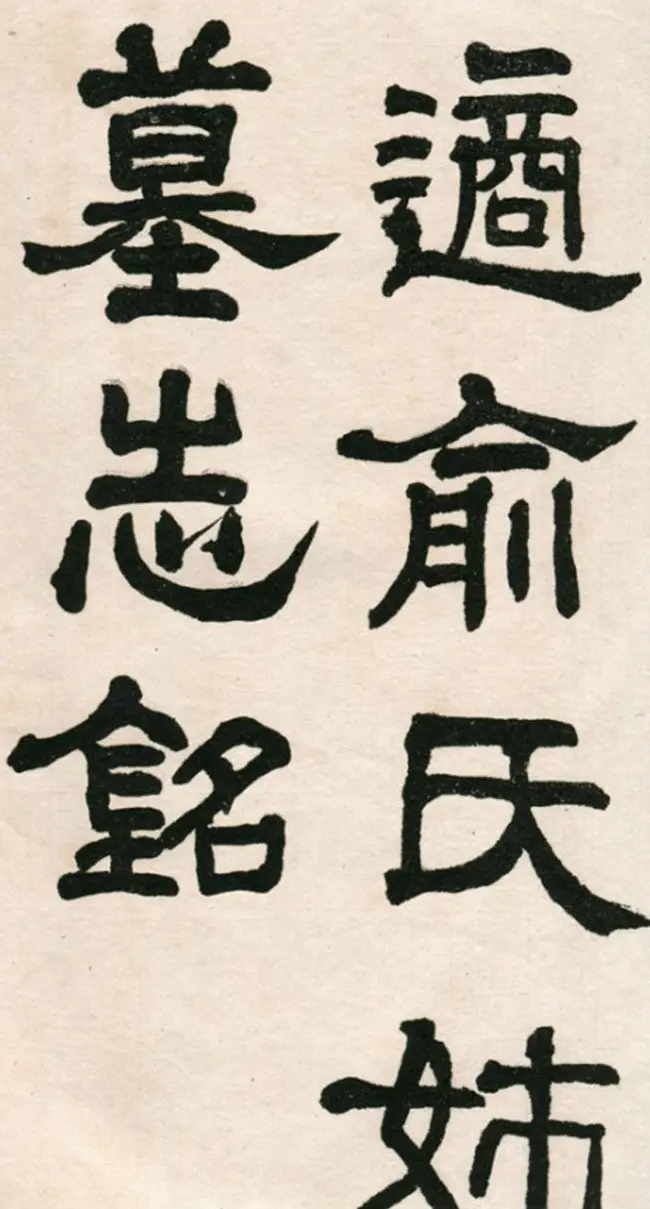 適俞氏姊
墓志銘